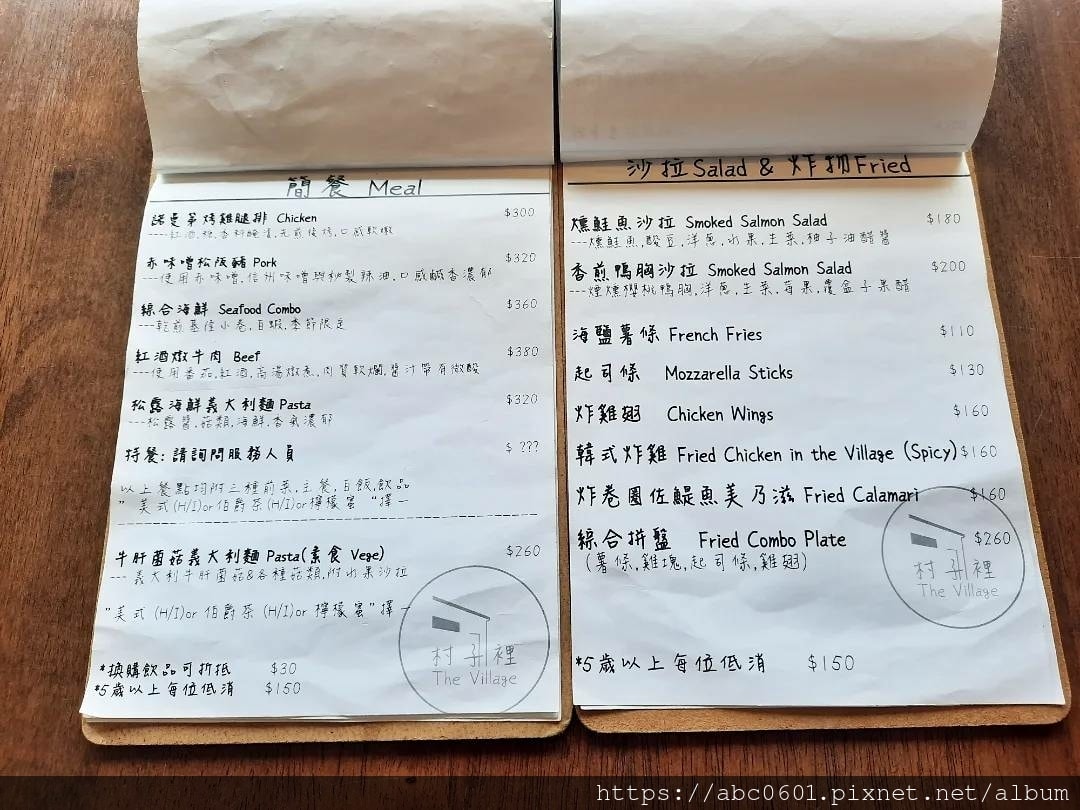 簡餐 Meal
諾曼第烤雞腿排 Chicken $300
----紅酒,糖,香料醃漬,先煎後烤,口感軟嫩
赤味噌松阪豬 Pork $320
---使用赤味噌,信州味噌與秘製辣油,口感鹹香濃郁
綜合海鮮 Seafood Combo $360
---乾煎基隆小卷,白蝦,季節限定
紅酒燉牛肉 Beef $380
---使用番茄,紅酒,高湯燉煮,肉質軟爛,醬汁帶有微酸
松露海鮮義大利麵 Pasta $320
---松露醬,菇類,海鮮,香氣濃郁
特餐:請詢問服務人員 $ ???
以上餐點均附三種前菜,主餐,白飯,飲品
" 美式(H/I)or伯爵茶(H/I)or檸檬蜜 "擇一
牛肝菌菇義大利麵 Pasta(素食 Vege) $260
--- 義大利牛肝菌菇&各種菇類,附水果沙拉
"美式 (H/I)or 伯爵茶 (H/I)or 檸檬蜜"擇一
*換購飲品可折抵 $30
*5歲以上每位低消 $150
村子裡
The Village
沙拉Salad & 炸物Fried
燻鮭魚沙拉 Smoked Salmon Salad $180
---燻鮭魚,酸豆,洋蔥,水果,生菜,柚子油醋醬
香煎鴨胸沙拉 Smoked Salmon Salad $200
---煙燻櫻桃鴨胸,洋蔥,生菜,莓果,覆盆子果醋
海鹽薯條 French Fries $110
起司條 Mozzarella Sticks $130
炸雞翅 Chicken Wings $160
韓式炸雞 Fried Chicken in the Village (Spicy) $160
炸卷圈佐鯷魚美乃滋 Fried Calamari $160
綜合拼盤 Fried Combo Plate $260
(薯條,雞塊,起司條,雞翅)
村子裡
The Village
*5歲以上每位低消 $150
https://abc0601.pixnet.net/album